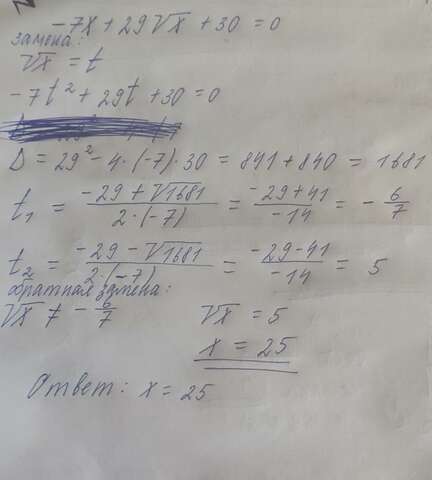 -7x + 29√x + 30 = 0
замена:
√x = t
-7t² + 29t + 30 = 0
D = 29² - 4·(-7)·30 = 841 + 840 = 1681
t₁ = (-29 + √1681)/(2·(-7)) = (-29 + 41)/(-14) = -6/7
t₂ = (-29 - √1681)/(2·(-7)) = (-29 - 41)/(-14) = 5
обратная замена:
√x ≠ -6/7 √x = 5
x = 25
Ответ: x = 25